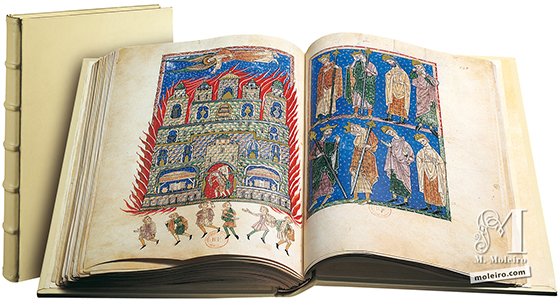 M
M. Moleiro
moleiro.com